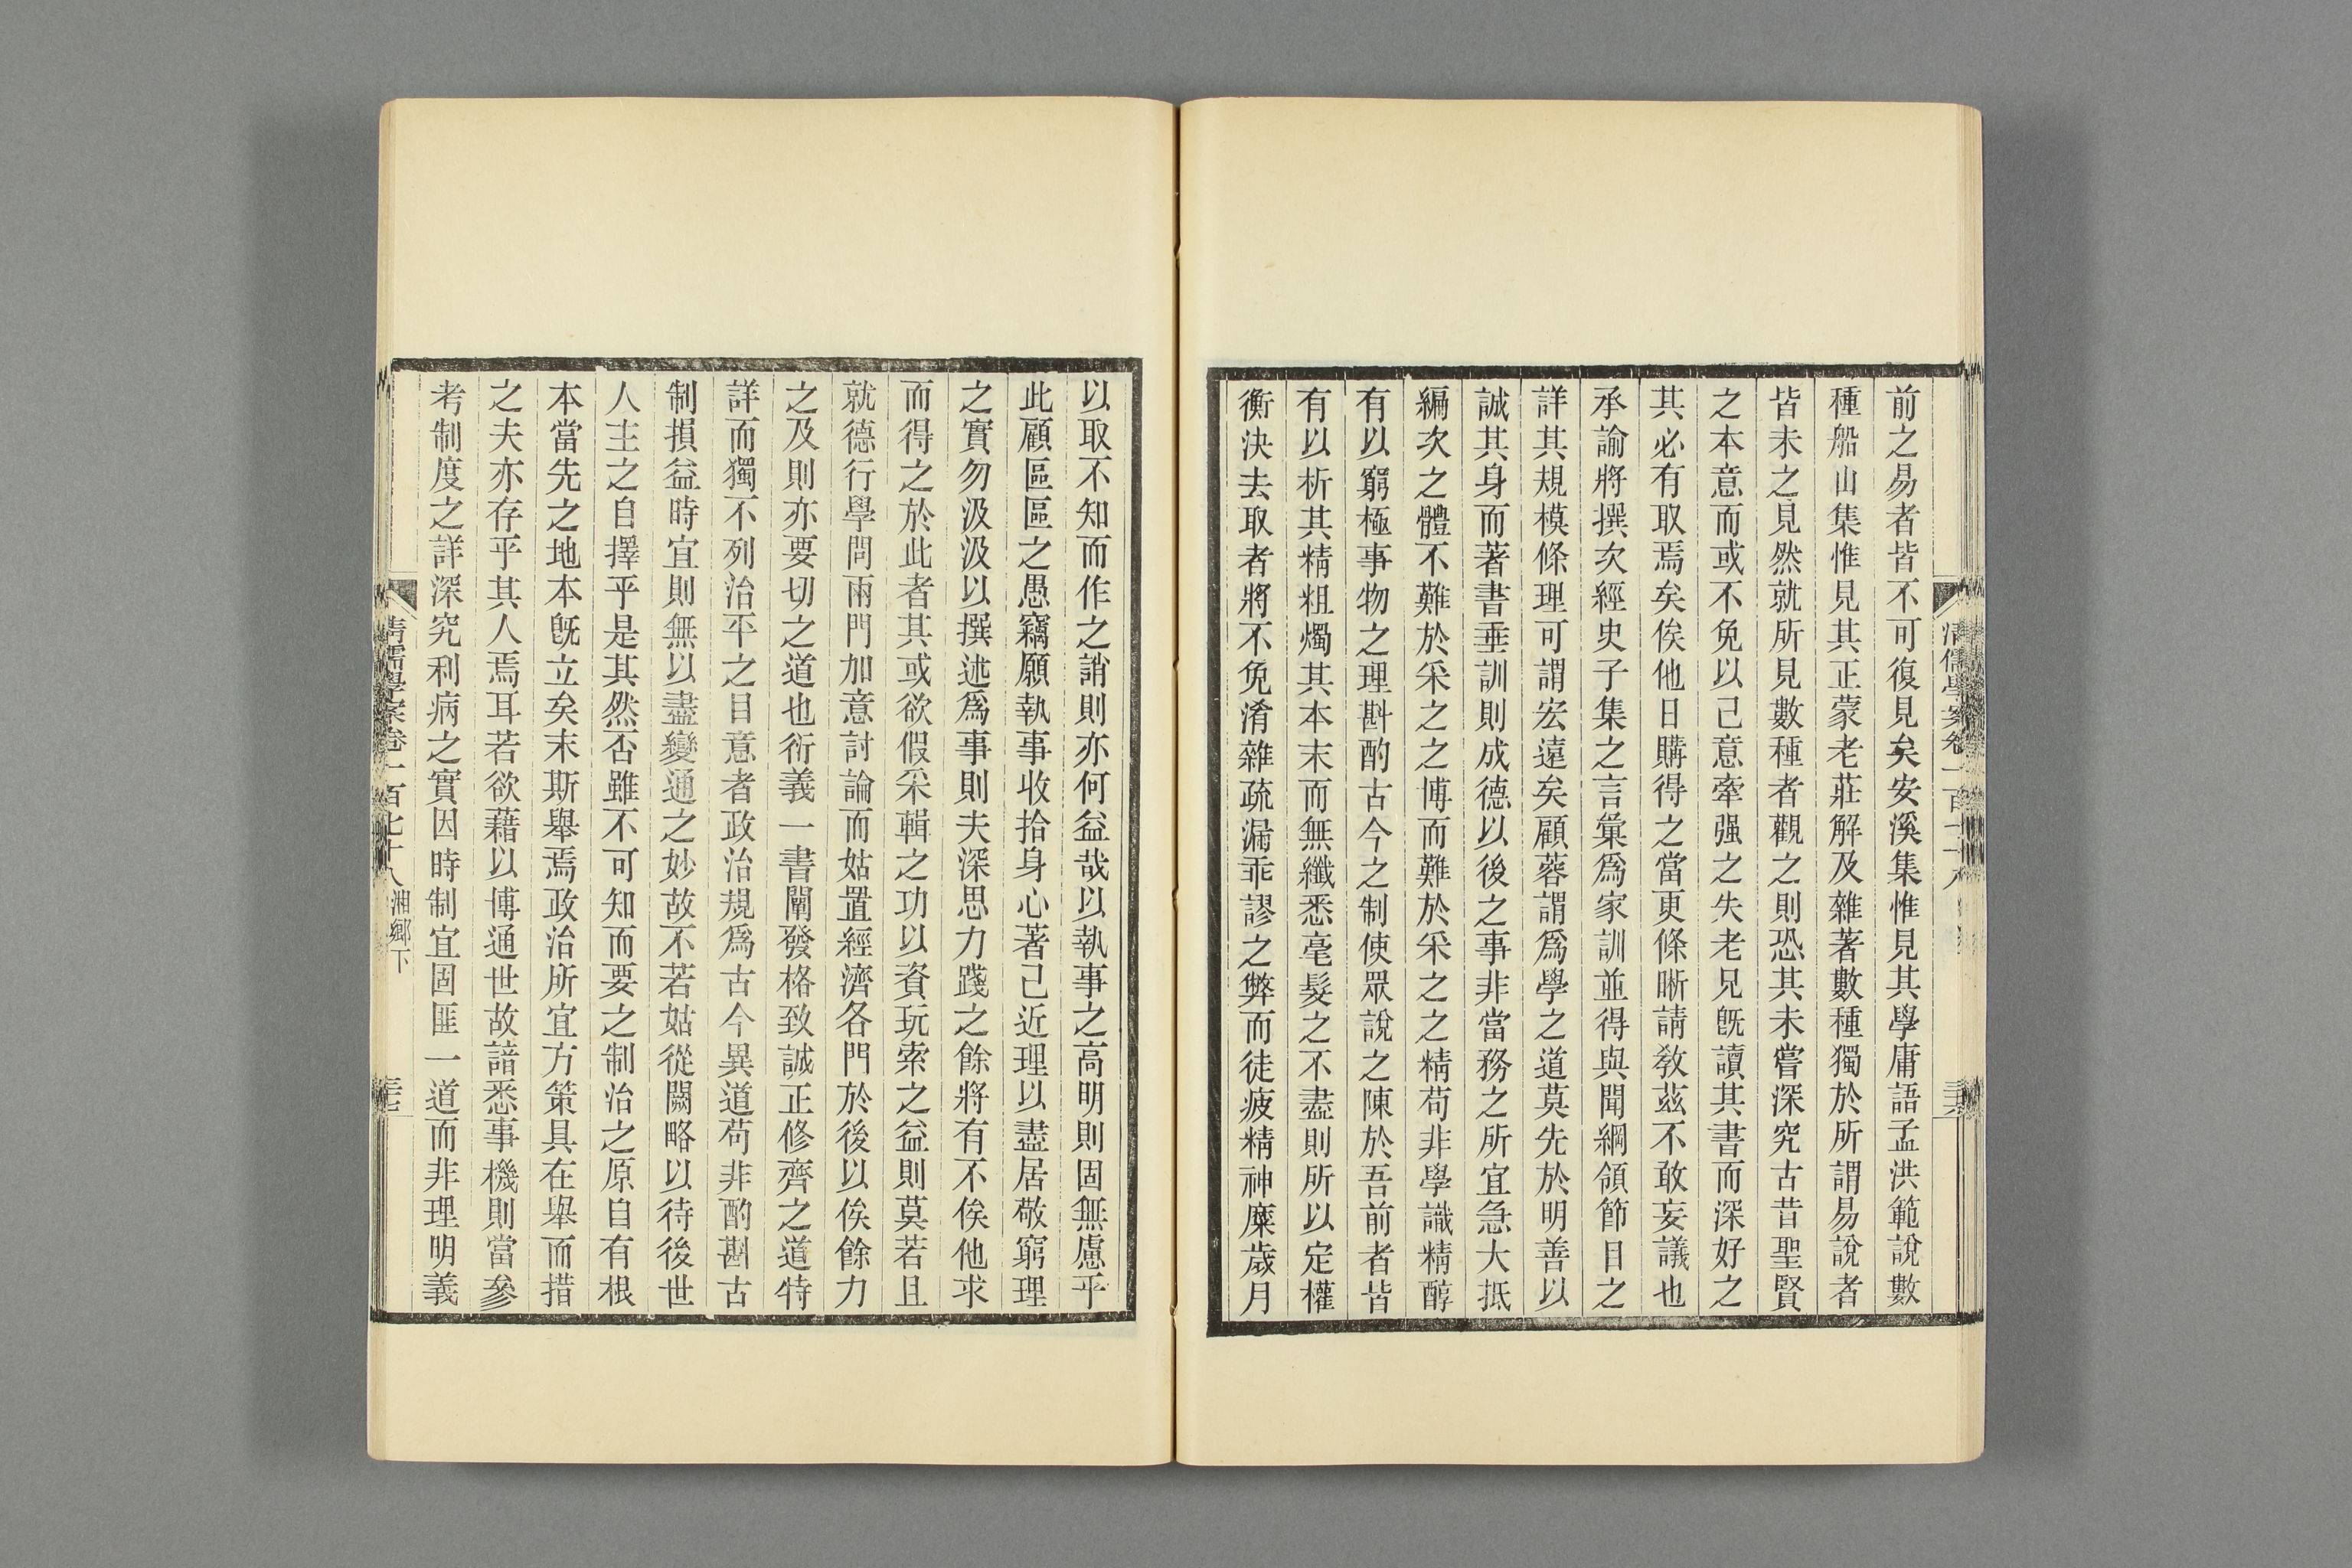 前之易者皆不可復見矣安溪集惟見其學庸語孟洪範說數
種船山集惟見其正蒙老莊解及雜著數種獨於所謂易說者
皆未之見然就所見數種者觀之則恐其未嘗深究古昔聖賢
之本意而或不免以己意牽强之失老兄旣讀其書而深好之
其必有取焉矣俟他日購得之當更條晰請敎茲不敢妄議也
承諭將撰次經史子集之言彙爲家訓並得與聞綱領節目之
詳其規模條理可謂宏遠矣顧蓉謂爲學之道莫先於明善以
誠其身而著書垂訓則成德以後之事非當務之所宜急大抵
編次之體不難於采之之博而難於采之之精苟非學識精醇
有以窮極事物之理斟酌古今之制使眾說之陳於吾前者皆
有以析其精粗燭其本末而無纖悉毫髮之不盡則所以定權
衡決去取者將不免淆雜疏漏乖謬之弊而徒疲精神糜歲月
以取不知而作之誚則亦何益哉以執事之高明則固無慮乎
此顧區區之愚竊願執事收拾身心著己近理以盡居敬窮理
之實勿汲汲以撰述爲事則夫深思力踐之餘將有不俟他求
而得之於此者其或欲假采輯之功以資玩索之益則莫若且
就德行學問兩門加意討論而姑置經濟各門於後以俟餘力
之及則亦要切之道也衍義一書闡發格致誠正修齊之道特
詳而獨不列治平之目意者政治規爲古今異道苟非酌斟古
制損益時宜則無以盡變通之妙故不若姑從闕略以待後世
人主之自擇乎是其然否雖不可知而要之制治之原自有根
本當先之地本旣立矣末斯舉焉政治所宜方策具在舉而措
之夫亦存乎其人焉耳若欲藉以博通世故諳悉事機則當參
考制度之詳深究利病之實因時制宜固匪一道而非理明義
清儒學案卷一百七十八 湘鄉下
三七